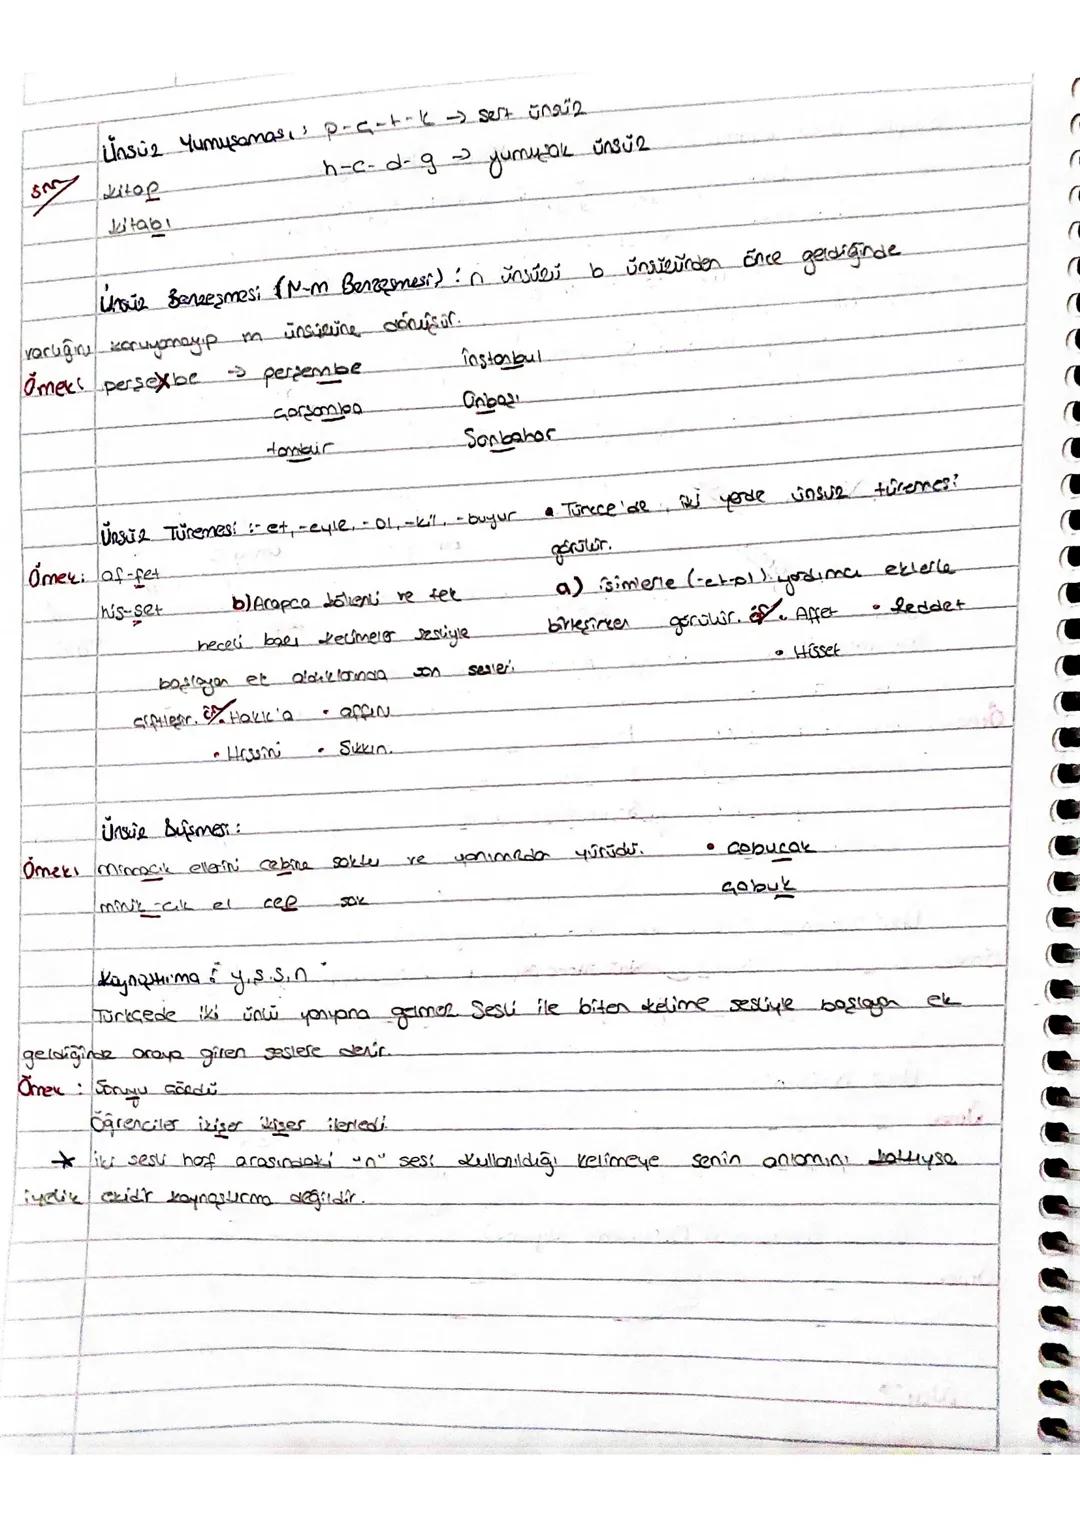 Ünsüz Yumuşaması: p-ç-t-k → sert ünsüz
h-c-d-g → yumuşak ünsüz
kitap
kitabı
Ünsüz Benzeşmesi (N-m Benzeşmesi): n ünsüzü b ünsüzünden önce geldiğinde
varlığını koruyamayıp m ünsüzüne dönüşür.
Örnek: perşexbe → perşembe instanbul
çarşamba Onbaşı
tambur Sonbahar
Ünsüz Türemesi :- et, -eyle, -ol, -kıl, -buyur
• Türkçe'de iki yerde ünsüz türemesi
görülür.
Örnek: af-fet
his-set
a) isimlerle (-et-ol) yardımcı eklerle
birleşirken görülür. ör. • Affet • Reddet
• Hisset
b) Arapça kökenli ve tek
heceli bazı kelimeler sesliyle
başlayan ek aldıklarında son sesleri
çiftleşir. ör. • Hakk'a • affın
• Hissini • Sıkkın.
Ünsüz Düşmesi:
Örnek: mincacık ellerini cebine soktu ve yanımızda yürüdü. • çabucak
minik-cik el cep sok çabuk
Kaynaştırma: y,ş,s,n
Türkçede iki ünlü yanyana gelmez Sesli ile biten kelime sesliyle başlayan ek
geldiğinde araya giren seslere denir.
Örnek : Soruyu Gördü
Öğrenciler ikişer ikişer ilerledi.
★ iki sesli harf arasındaki "n" sesi kullanıldığı kelimeye senin anlamını kattıysa
iyelik ekidir kaynaştırma değildir.